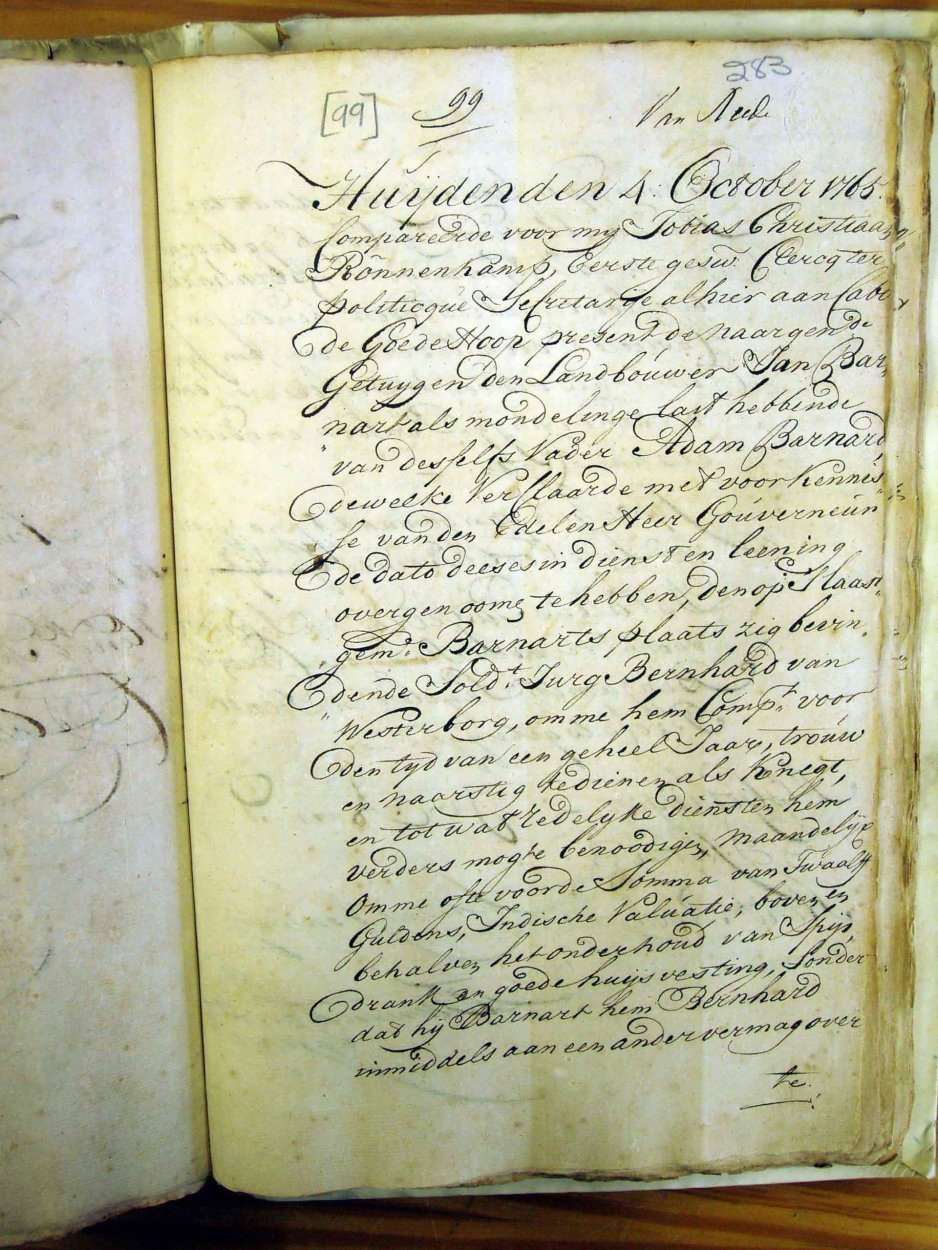 283
[99] 99 Van Reede
Huijden den 4: October 1765.
Compareerde voor mij Tobias Christiaan
Rönnenkamp, Eerste gesw: Clercq ter
politicque Secretarije alhier aan Cabo
de Goede Hoop, present de naargende
Getuygen, den Landbouwer Jan Bar,
nart als mondelinge last hebbende
van desselfs Vader Adam Barnard
dewelke Verclaarde met voorkennis
se van den Edelen Heer Gouverneur
de dato deeses in dienst en leening
overgenoome te hebben, den op Slaast
gem: Barnarts plaats zig bevin
dende Sold:t Jurg Bernhard van
Westerborg, omme hem Comp:t voor
den tyd van een geheel Jaar, trouw
en naarstig te dienen als Knegt,
en tot wat redelyke diensten hem
verders mogte benoodigen, Maandelijx
Omme ofte voor de Somma van Twaalff
Guldens, Indische Valuatie, boven en
behalven het onderhoud van Spijs
drank en goede huijsvesting, Sonder
dat hij Barnart hem Bernhard
inmiddels aan een ander vermag over
te.